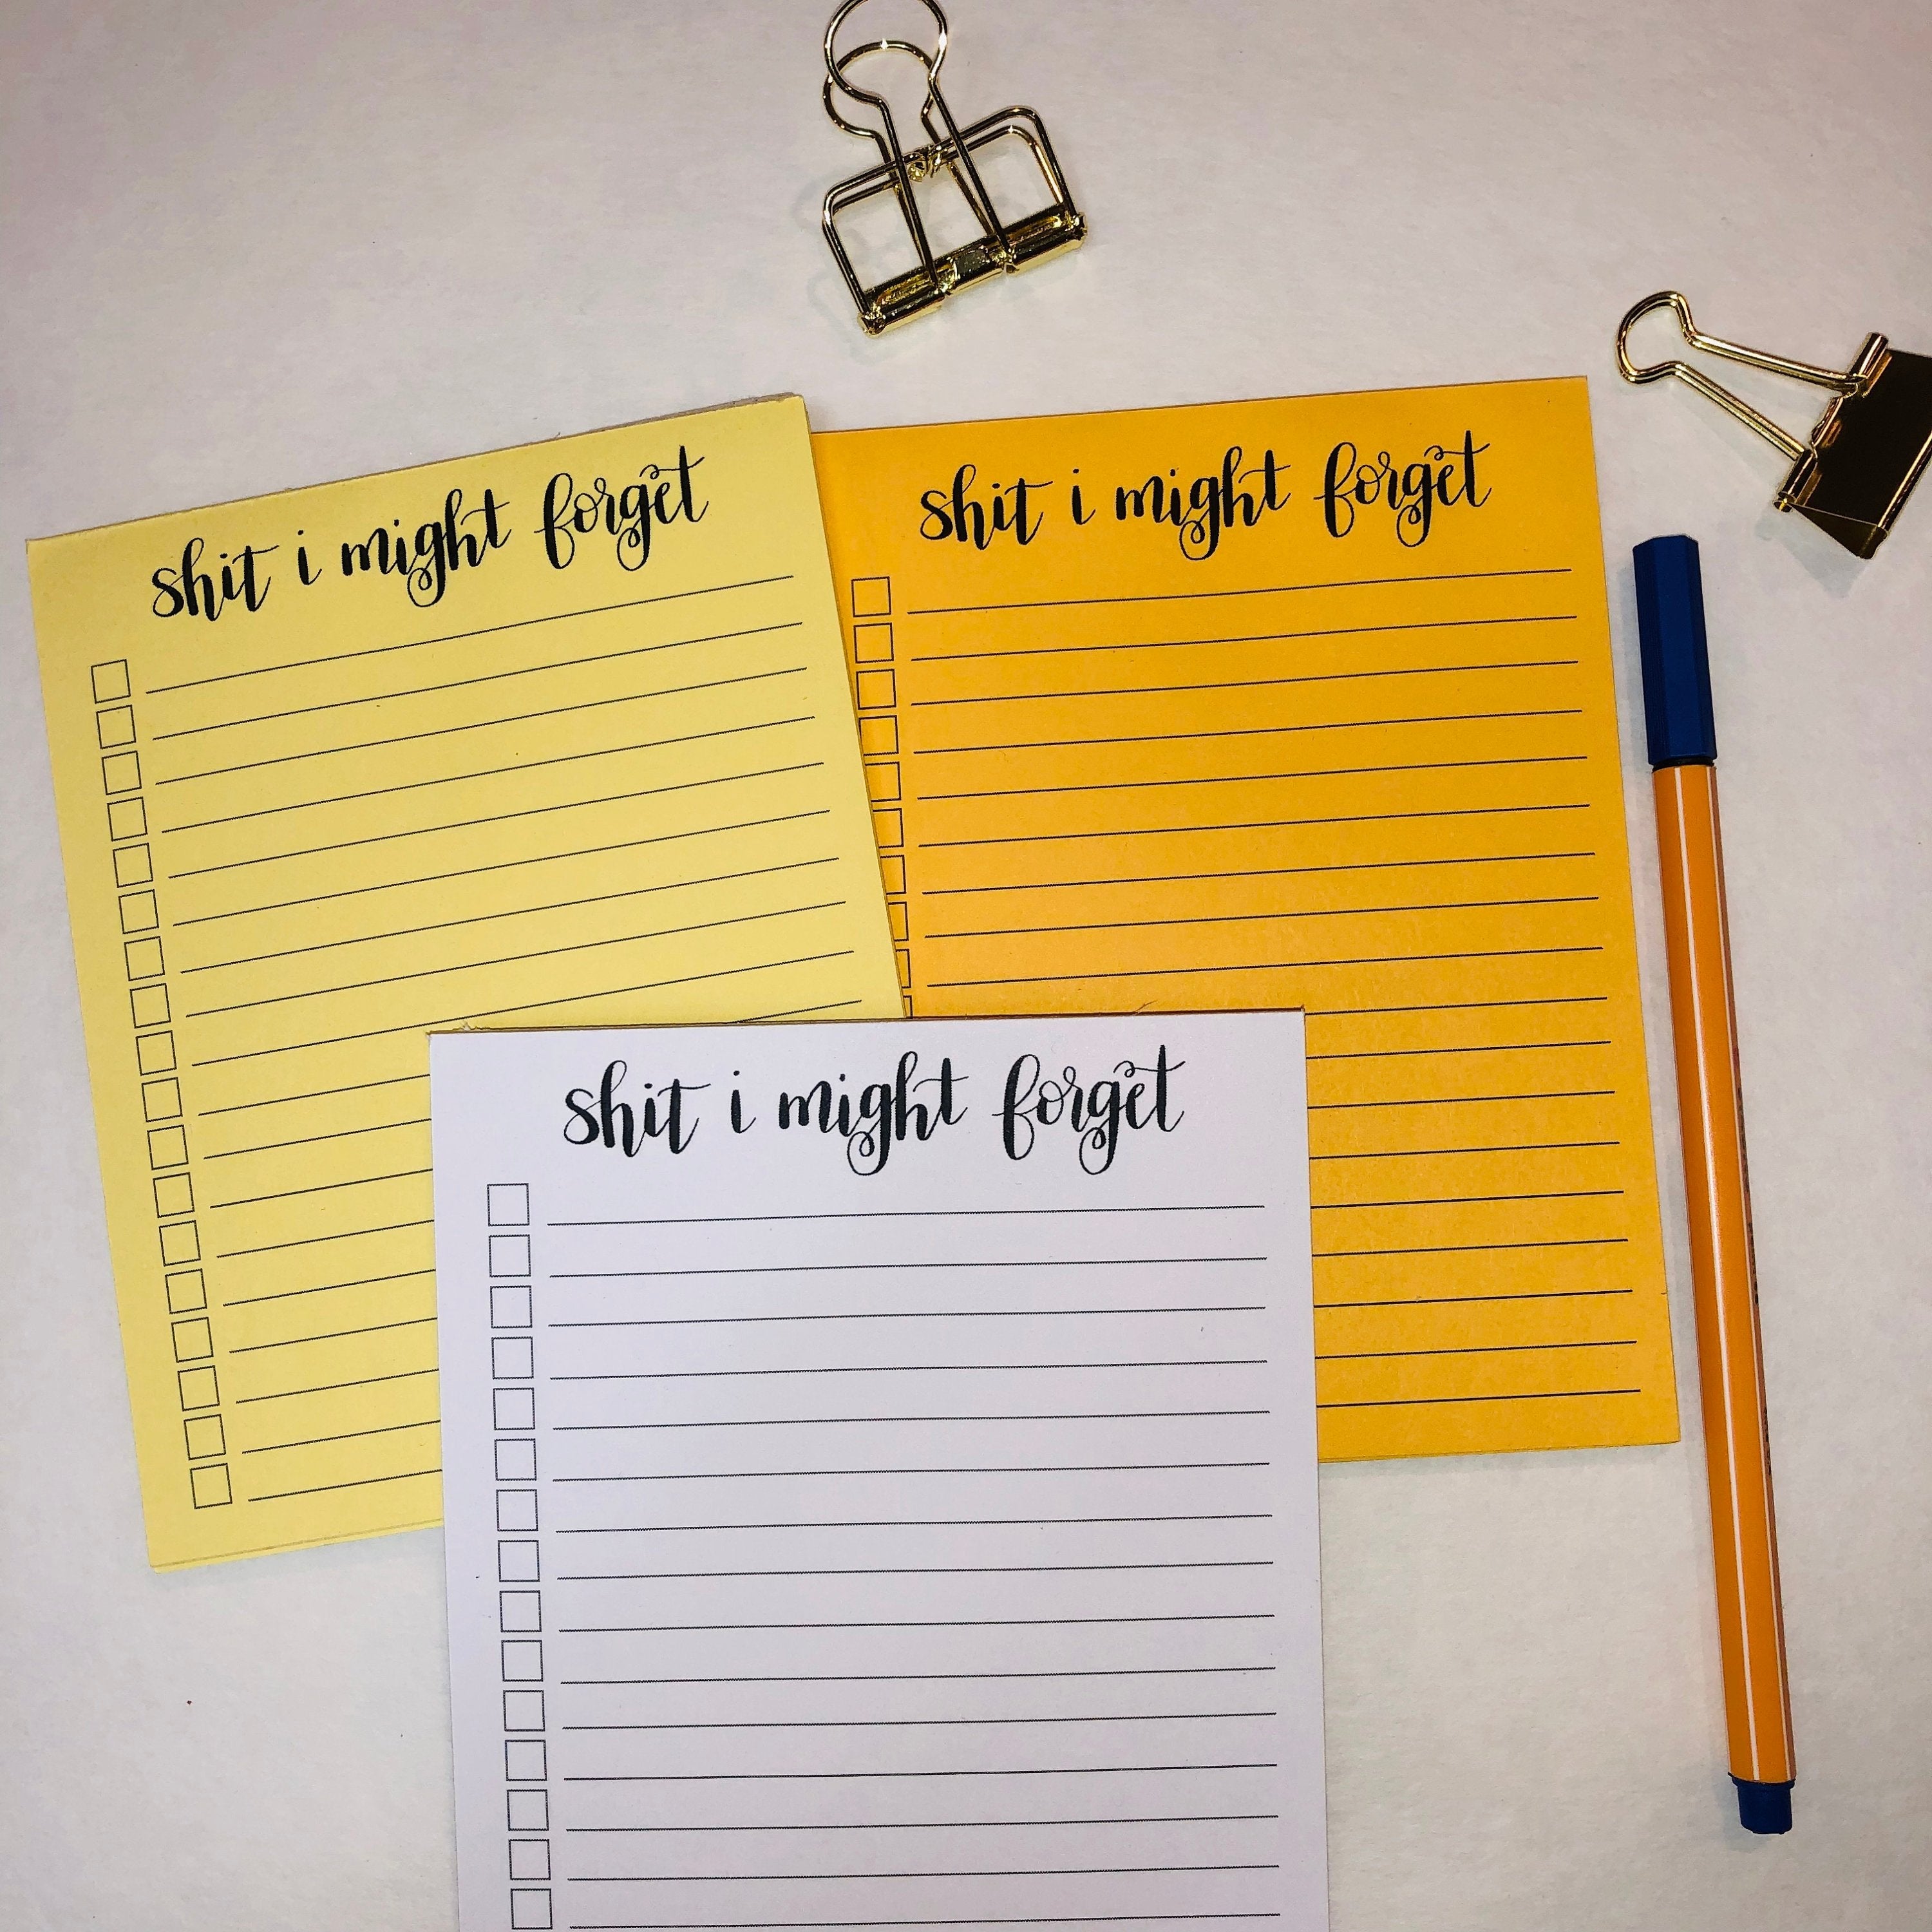 shit i might forget
shit i might forget
shit i might forget